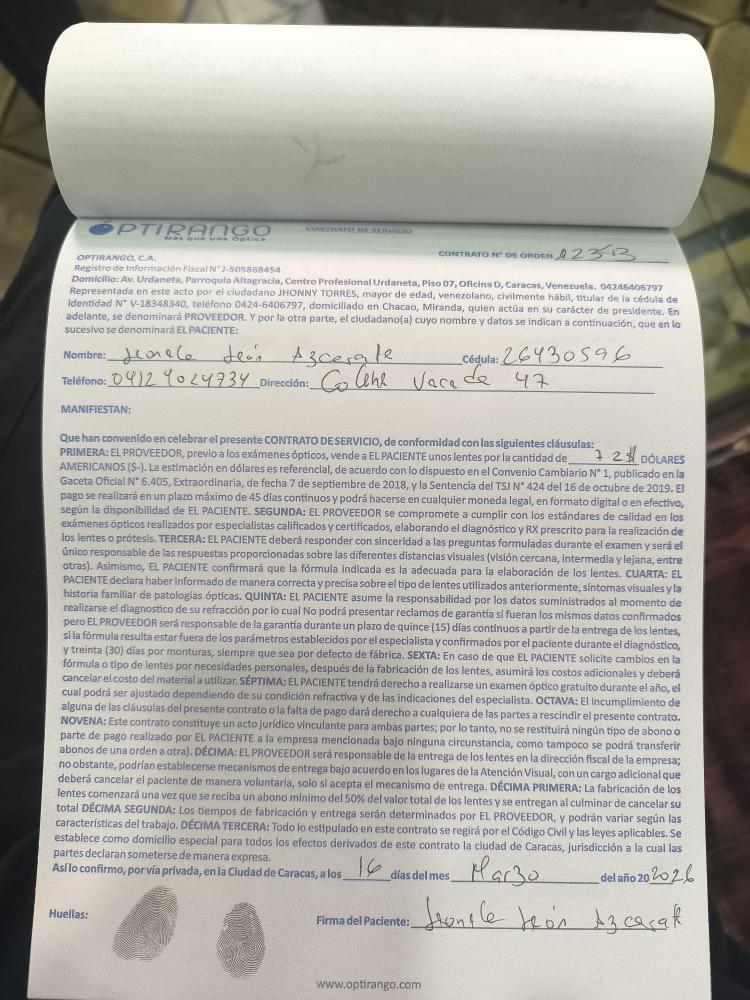 OPTIRANGO
Más que una Óptica
CONTRATO DE SERVICIO
CONTRATO N° DE ORDEN
OPTIRANGO, C.A.
Registro de Información Fiscal N° J-505868454
Domicilio: Av. Urdaneta, Parroquia Altagracia, Centro Profesional Urdaneta, Piso 07, Oficina D, Caracas, Venezuela. 04246406797
Representada en este acto por el ciudadano JHONNY TORRES, mayor de edad, venezolano, civilmente hábil, titular de la cédula de
Identidad N° V-18348340, teléfono 0424-6406797, domiciliado en Chacao, Miranda, quien actúa en su carácter de presidente. En
adelante, se denominará PROVEEDOR. Y por la otra parte, el ciudadano(a) cuyo nombre y datos se indican a continuación, que en lo
sucesivo se denominará EL PACIENTE:
Nombre: León Azcarate Cédula: 26430596
Teléfono: 04129024734 Dirección: 47
MANIFIESTAN:
Que han convenido en celebrar el presente CONTRATO DE SERVICIO, de conformidad con las siguientes cláusulas:
PRIMERA: EL PROVEEDOR, previo a los exámenes ópticos, vende a EL PACIENTE unos lentes por la cantidad de 72$ DÓLARES
AMERICANOS ($-). La estimación en dólares es referencial, de acuerdo con lo dispuesto en el Convenio Cambiario N° 1, publicado en la
Gaceta Oficial N° 6.405, Extraordinaria, de fecha 7 de septiembre de 2018, y la Sentencia del TSJ N° 424 del 16 de octubre de 2019. El
pago se realizará en un plazo máximo de 45 días continuos y podrá hacerse en cualquier moneda legal, en formato digital o en efectivo,
según la disponibilidad de EL PACIENTE. SEGUNDA: EL PROVEEDOR se compromete a cumplir con los estándares de calidad en los
exámenes ópticos realizados por especialistas calificados y certificados, elaborando el diagnóstico y RX prescrito para la realización de
los lentes o prótesis. TERCERA: EL PACIENTE deberá responder con sinceridad a las preguntas formuladas durante el examen y será el
único responsable de las respuestas proporcionadas sobre las diferentes distancias visuales (visión cercana, intermedia y lejana, entre
otras). Asimismo, EL PACIENTE confirmará que la fórmula indicada es la adecuada para la elaboración de los lentes. CUARTA: EL
PACIENTE declara haber informado de manera correcta y precisa sobre el tipo de lentes utilizados anteriormente, síntomas visuales y la
historia familiar de patologías ópticas. QUINTA: EL PACIENTE asume la responsabilidad por los datos suministrados al momento de
realizarse el diagnostico de su refracción por lo cual No podrá presentar reclamos de garantía si fueran los mismos datos confirmados
pero EL PROVEEDOR será responsable de la garantía durante un plazo de quince (15) días continuos a partir de la entrega de los lentes,
si la fórmula resulta estar fuera de los parámetros establecidos por el especialista y confirmados por el paciente durante el diagnóstico,
y treinta (30) días por monturas, siempre que sea por defecto de fábrica. SEXTA: En caso de que EL PACIENTE solicite cambios en la
fórmula o tipo de lentes por necesidades personales, después de la fabricación de los lentes, asumirá los costos adicionales y deberá
cancelar el costo del material a utilizar. SÉPTIMA: EL PACIENTE tendrá derecho a realizarse un examen óptico gratuito durante el año, el
cual podrá ser ajustado dependiendo de su condición refractiva y de las indicaciones del especialista. OCTAVA: El incumplimiento de
alguna de las cláusulas del presente contrato o la falta de pago dará derecho a cualquiera de las partes a rescindir el presente contrato.
NOVENA: Este contrato constituye un acto jurídico vinculante para ambas partes; por lo tanto, no se restituirá ningún tipo de abono o
parte de pago realizado por EL PACIENTE a la empresa mencionada bajo ninguna circunstancia, como tampoco se podrá transferir
abonos de una orden a otra). DÉCIMA: EL PROVEEDOR será responsable de la entrega de los lentes en la dirección fiscal de la empresa;
no obstante, podrían establecerse mecanismos de entrega bajo acuerdo en los lugares de la Atención Visual, con un cargo adicional que
deberá cancelar el paciente de manera voluntaria, solo si acepta el mecanismo de entrega. DÉCIMA PRIMERA: La fabricación de los
lentes comenzará una vez que se reciba un abono mínimo del 50% del valor total de los lentes y se entregan al culminar de cancelar su
total DÉCIMA SEGUNDA: Los tiempos de fabricación y entrega serán determinados por EL PROVEEDOR, y podrán variar según las
características del trabajo. DÉCIMA TERCERA: Todo lo estipulado en este contrato se regirá por el Código Civil y las leyes aplicables. Se
establece como domicilio especial para todos los efectos derivados de este contrato la ciudad de Caracas, jurisdicción a la cual las
partes declaran someterse de manera expresa.
Así lo confirmo, por vía privada, en la Ciudad de Caracas, a los 16 días del mes Marzo del año 202026
Huellas:
Firma del Paciente: León Azcarate
www.optirango.com